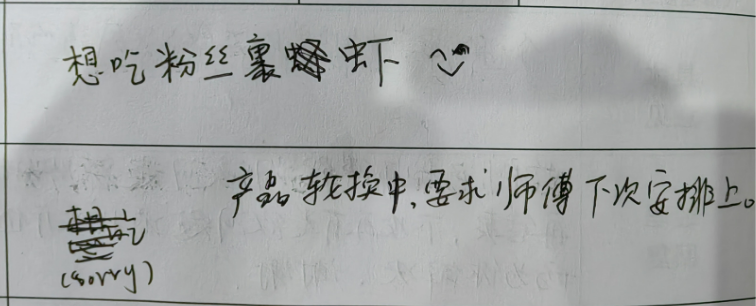 想吃粉丝裹虾
产品轮换中,要求师傅下次安排上。
(sorry)